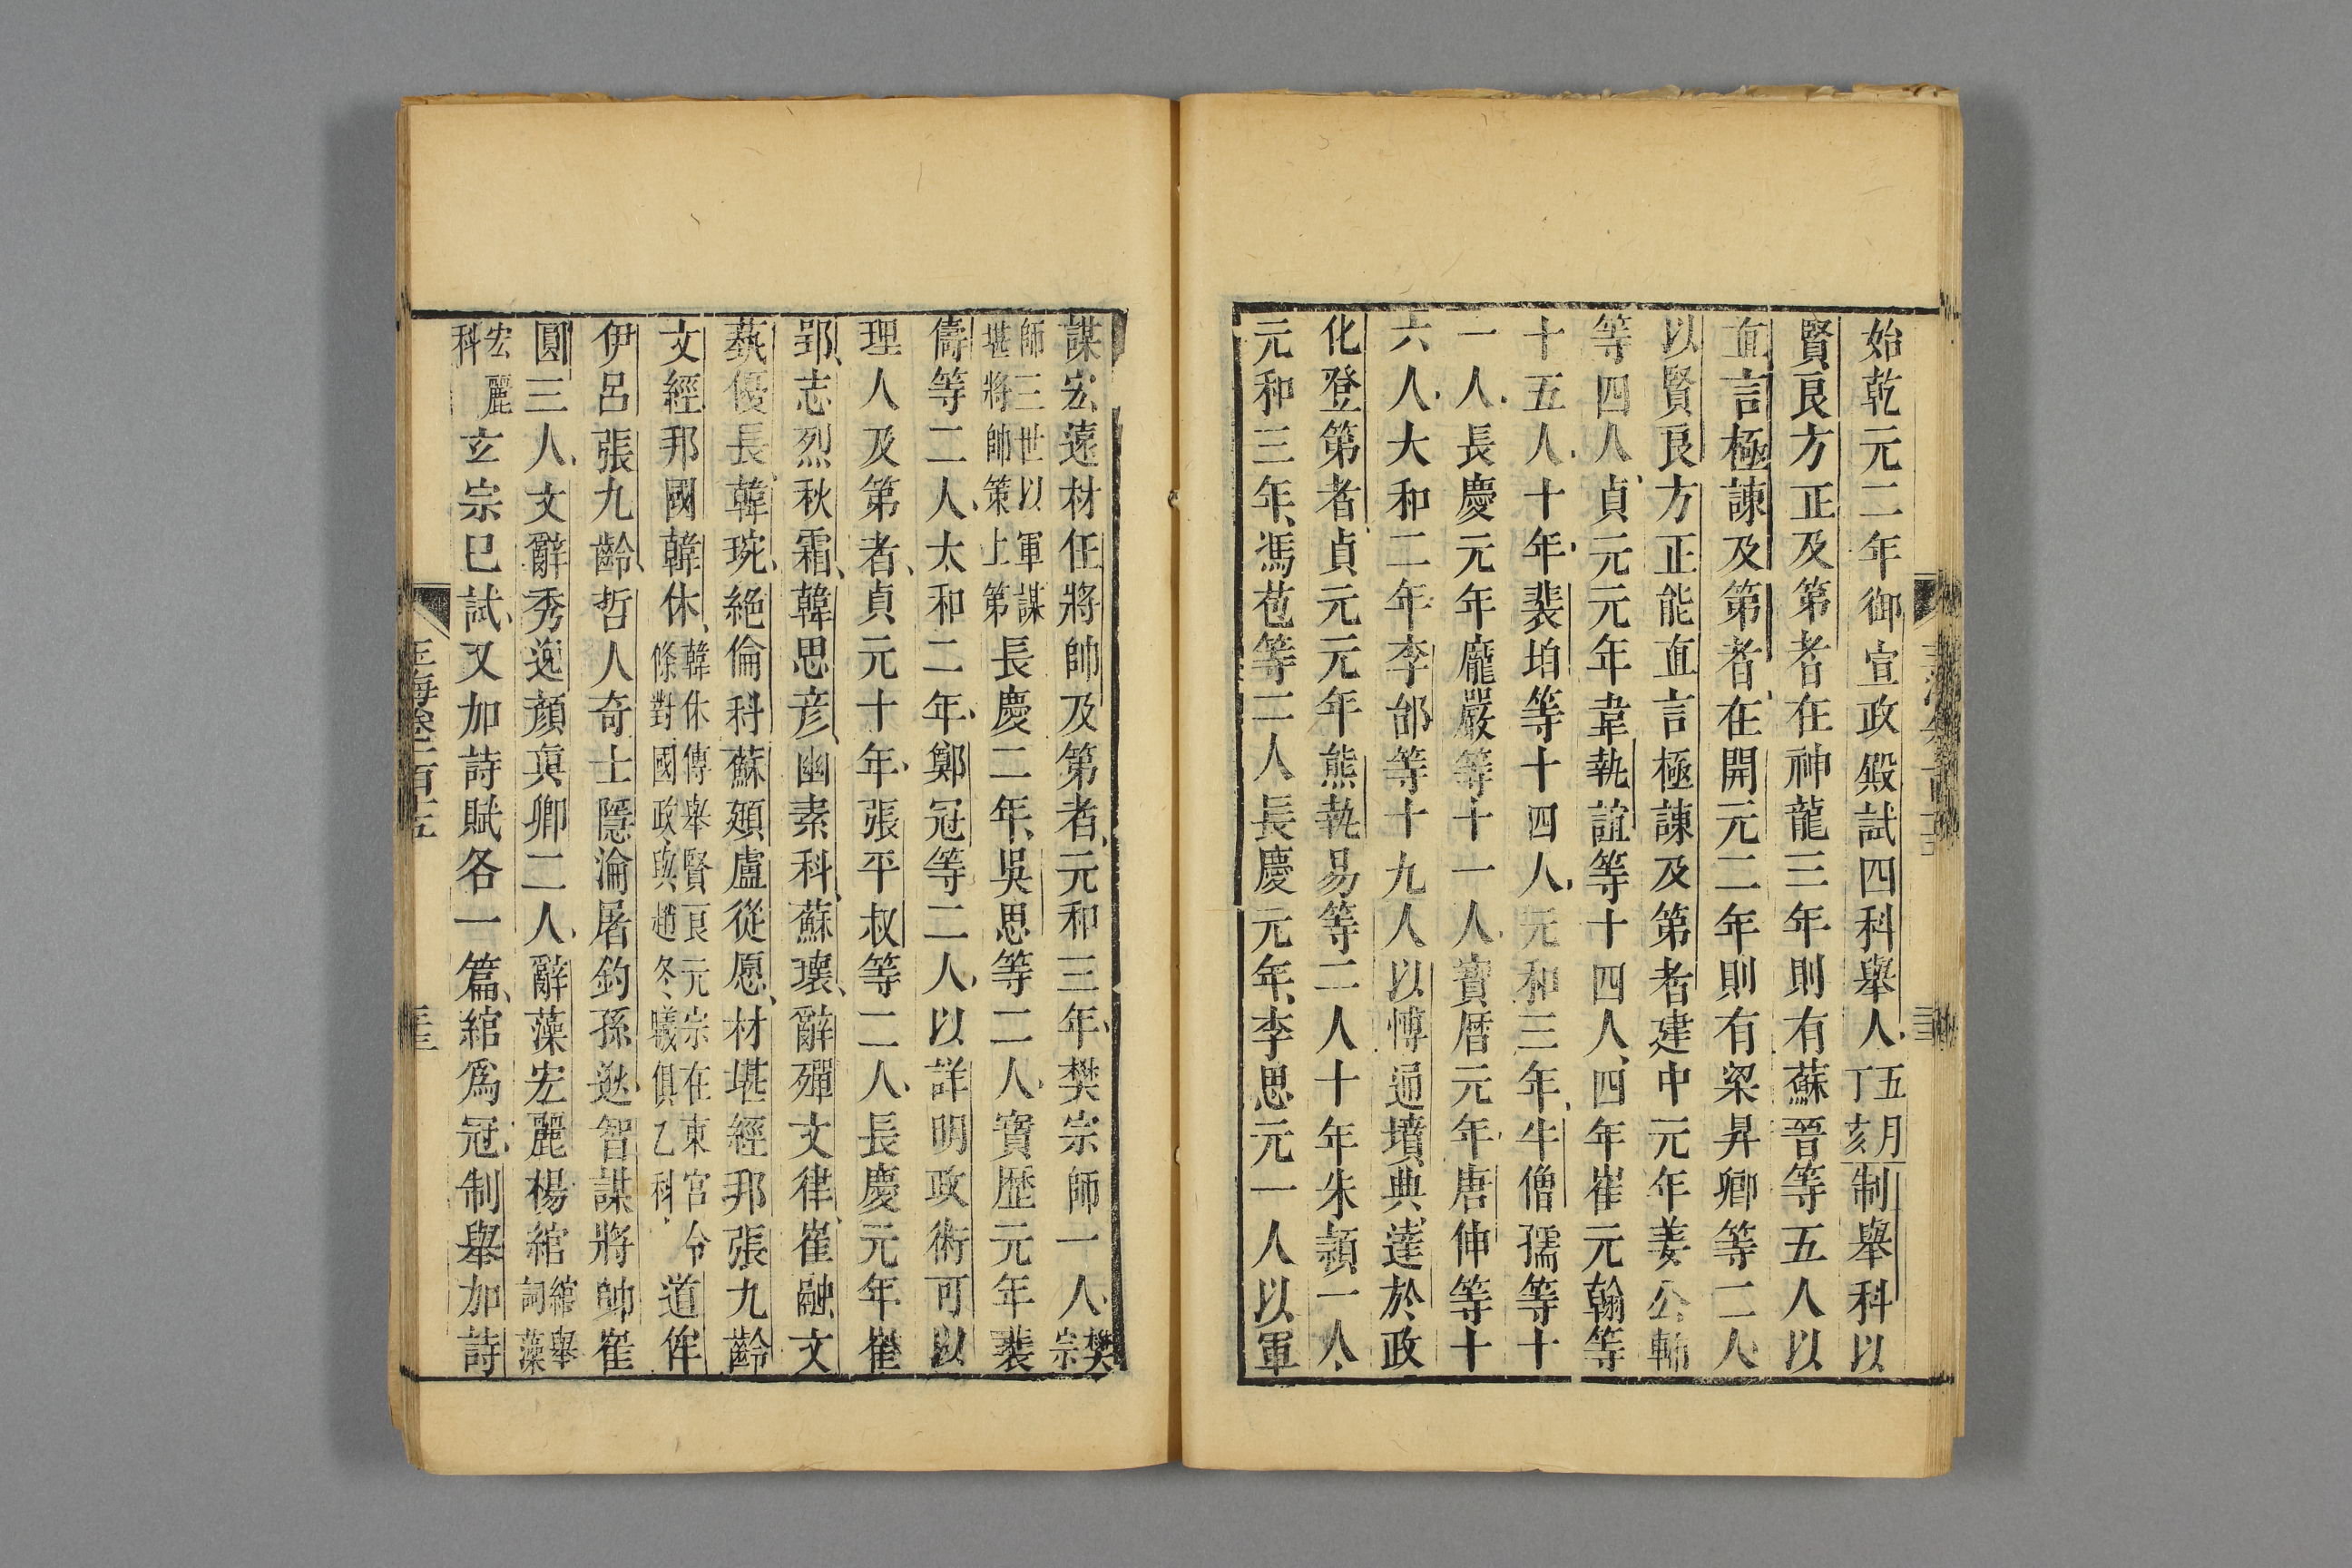 始乾元二年御宣政殿試四科舉人五月丁亥制舉科以
賢良方正及第者在神龍三年則有蘇晉等五人以
直言極諫及第者在開元二年則有梁昇卿等二人
以賢良方正能直言極諫及第者建中元年姜公輔
等四人貞元元年韋執誼等十四人四年崔元翰等
十五人十年裴垍等十四人元和三年牛僧孺等十
一人長慶元年龐嚴等十一人寶曆元年唐伸等十
六人大和二年李郃等十九人以博通墳典達於政
化登第者貞元元年熊執易等二人十年朱潁一人
元和三年馮苞等二人長慶元年李思元一人以軍
謀宏遠材任將帥及第者元和三年樊宗師一人樊宗
師三世以軍謀堪將帥策上第長慶二年吳思等二人寶歷元年裴
儔等二人太和二年鄭冠等二人以詳明政術可以
理人及第者貞元十年張平叔等二人長慶元年崔
郢志烈秋霜韓思彥幽素科蘇瓌辭殫文律崔融文
藝優長韓琬絕倫科蘇頲盧從愿材堪經邦張九齡
文經邦國韓休韓休傳舉賢良元宗在東宮令條對國政與趙冬曦俱乙科道侔
伊呂張九齡哲人奇士隱淪屠釣孫逖智謀將帥崔
圓三人文辭秀逸顏真卿二人辭藻宏麗楊綰綰舉詞藻
宏麗科玄宗已試又加詩賦各一篇綰爲冠制舉加詩
玉海卷一百十五